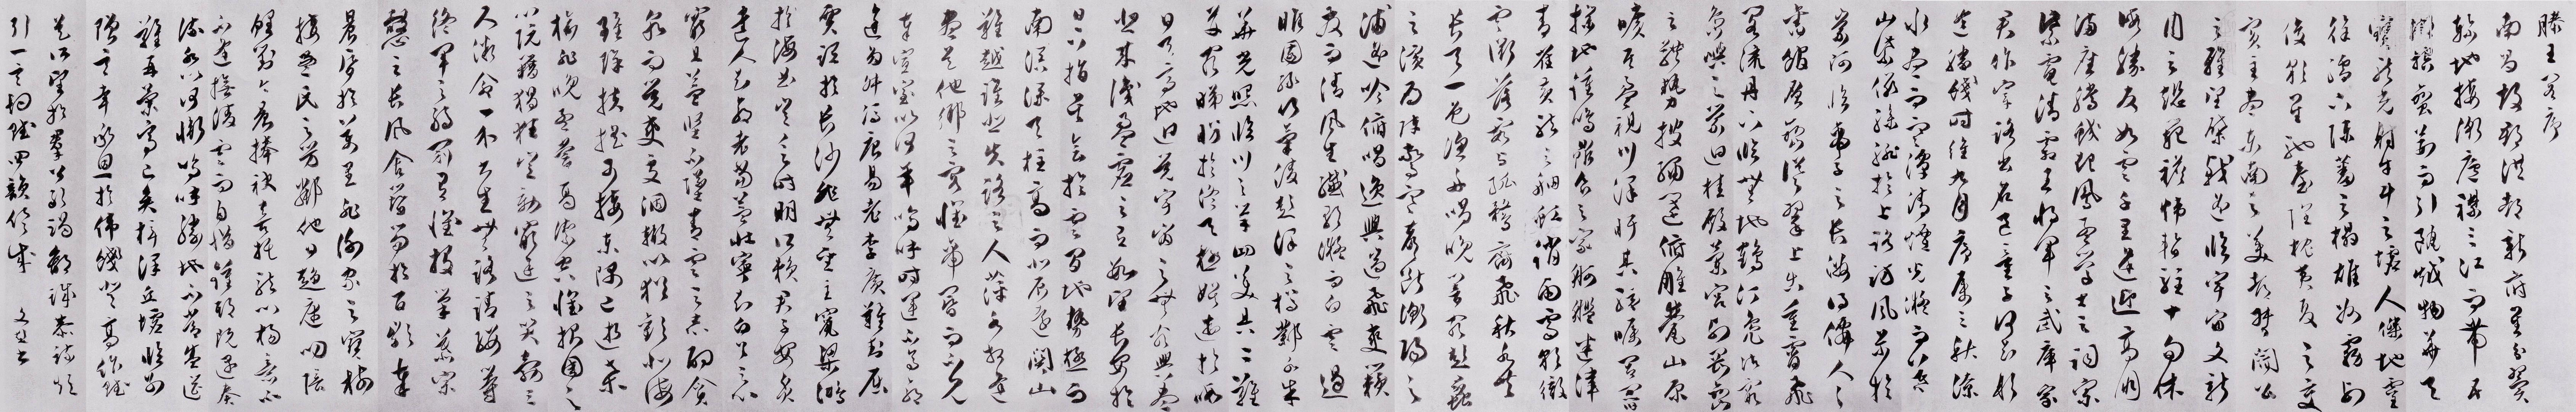 滕王阁序
南昌故郡洪都新府星分翼
軫地接衡廬襟三江而帶五
湖控蠻荊而引甌越物華天
寶龍光射牛斗之墟人傑地靈
徐孺下陳蕃之榻雄州霧列
俊彩星馳臺隍枕夷夏之交
賓主盡東南之美都督閻公
之雅望棨戟遙臨宇文新
州之懿範襜帷暫駐十旬休
暇勝友如雲千里逢迎高朋
滿座騰蛟起鳳孟學士之詞宗
紫電清霜王將軍之武庫家
君作宰路出名區童子何知躬
逢勝餞時維九月序屬三秋潦
水盡而寒潭清煙光凝而暮
山紫儼驂騑於上路訪風景於
崇阿臨帝子之長洲得仙人之
舊館層巒聳翠上出重霄飛
閣流丹下臨無地鶴汀鳧渚窮
島嶼之縈迴桂殿蘭宮列岡巒
之體勢披繡闥俯雕甍山原
曠其盈視川澤紆其駭矚閭閻
撲地鐘鳴鼎食之家舸艦迷津
青雀黃龍之舳虹銷雨霽彩徹
雲衢落霞與孤鶩齊飛秋水共
長天一色漁舟唱晚響窮彭蠡
之濱雁陣驚寒聲斷衡陽之
浦遙吟俯暢逸興遄飛爽籟
發而清風生纖歌凝而白雲遏
睢園綠竹氣凌彭澤之樽鄴水朱
華光照臨川之筆四美具二難
并窮睇眄於中天極娛遊於暇
日天高地迥覺宇宙之無窮興盡
悲來識盈虛之有數望長安於
日下指吳會於雲間地勢極而
南溟深天柱高而北辰遠關山
難越誰悲失路之人萍水相逢
盡是他鄉之客懷帝閽而不見
奉宣室以何年嗚呼時運不齊命
途多舛馮唐易老李廣難封屈
賈誼於長沙非無聖主竄梁鴻
於海曲豈乏明時所賴君子安貧
達人知命老當益壯寧知白首之心
窮且益堅不墜青雲之志酌貪
泉而覺爽處涸轍以猶歡北海
雖賒扶搖可接東隅已逝桑
榆非晚孟嘗高潔空懷報國之
心阮籍猖狂豈效窮途之哭勃三
人微命一介書生無路請纓等
終軍之弱冠有懷投筆慕宗
慤之長風舍簪笏於百齡奉
晨昏於萬里非謝家之寶樹
接孟氏之芳鄰他日趨庭叨陪
鯉對今晨捧袂喜托龍門楊意不
逢撫凌雲而自惜鍾期既遇奏
流水以何慚嗚呼勝地不常盛筵
難再蘭亭已矣梓澤丘墟臨別
贈言幸承恩於偉餞登高作賦
是所望於群公敢竭鄙誠恭疏短
引一言均賦四韻俱成